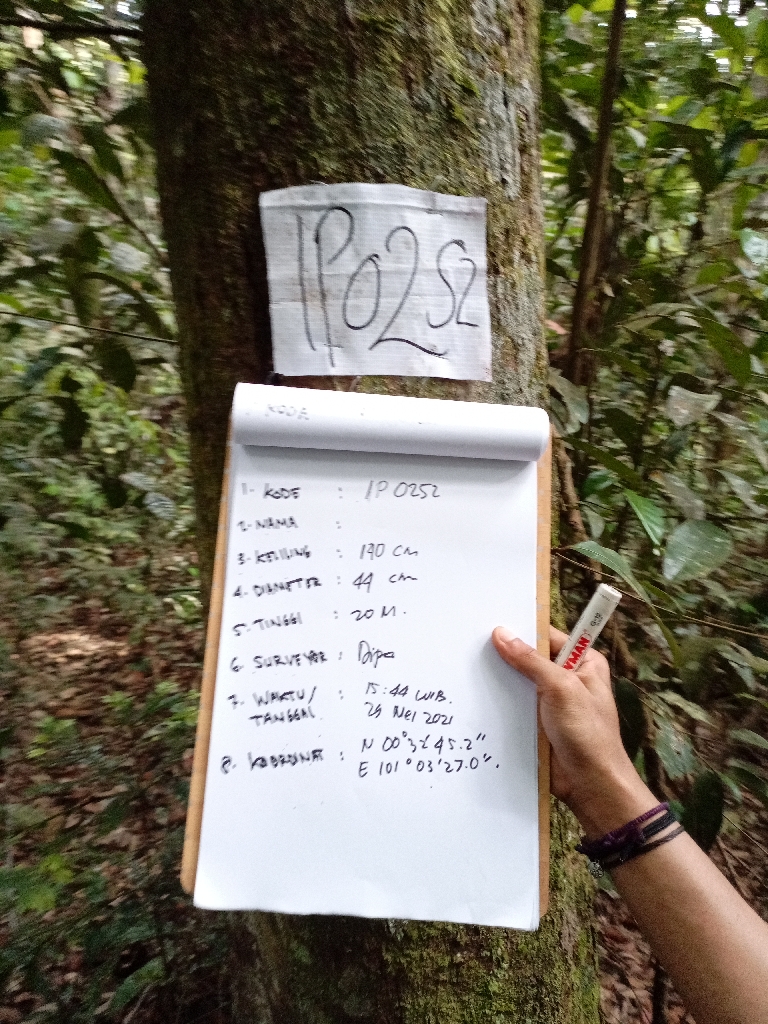 IP0252
KODE :
1. KODE : IP 0252
2. NAMA :
3. KELILING : 140 cm
4. DIAMETER : 44 cm
5. TINGGI : 20 M.
6. SURVEYOR : Dipa
7. WAKTU/ : 15:44 WIB.
TANGGAL 29 Mei 2021
8. KOORDINAT : N 00°32'45.2"
E 101°03'27.0".